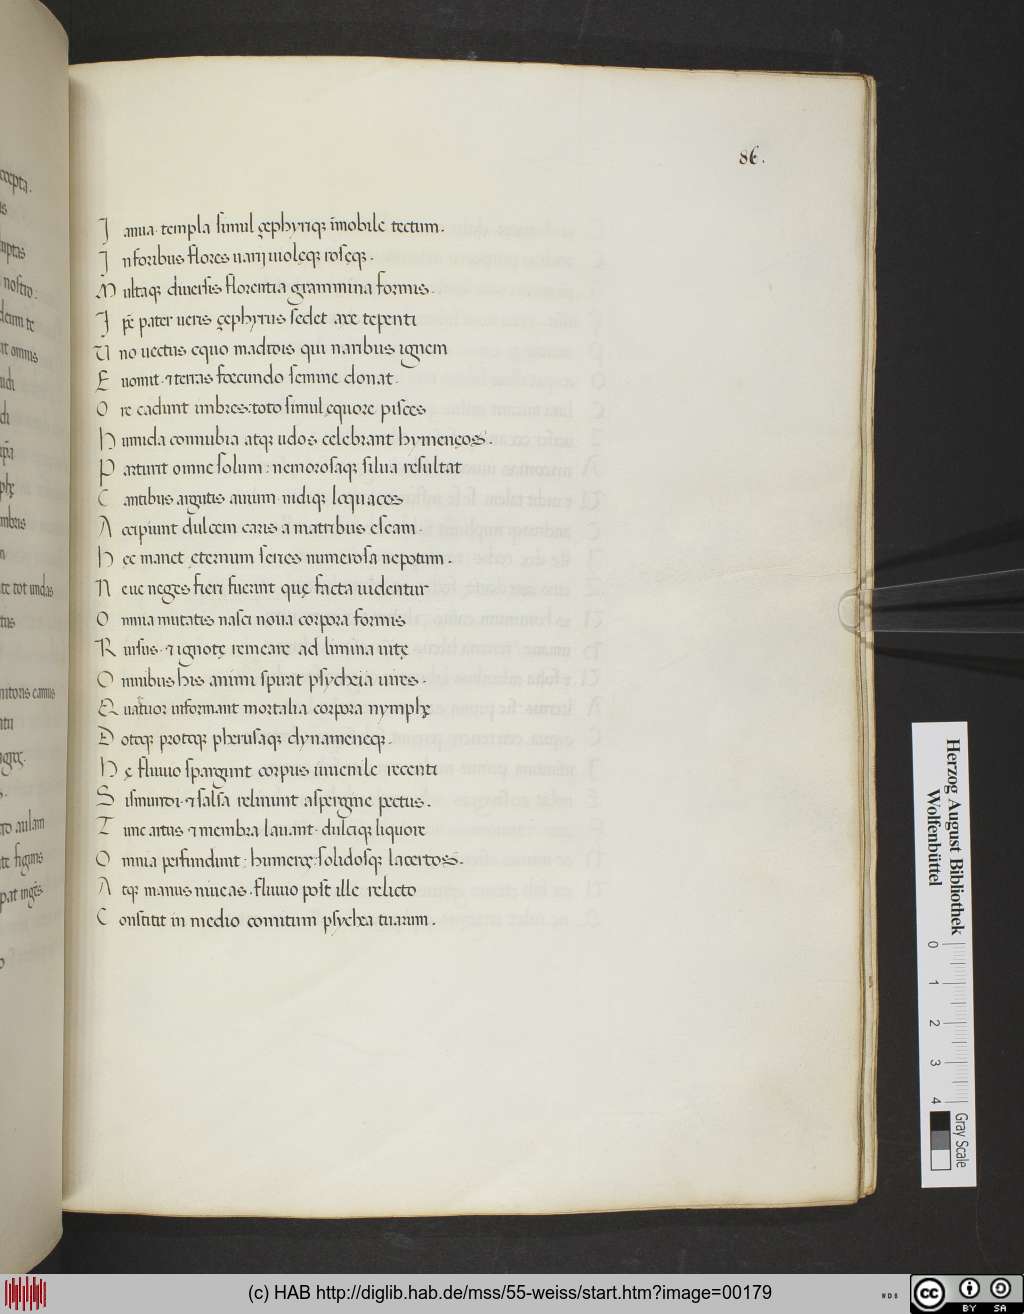 86.
Janua. templa simul zephyriq; īmobile tectum.
Jn foribus flores uarij uiolęq; rosęq;.
Multaq; diuersis florentia grammina formis.
Jpē pater ueris zephyrus sedet axe tepenti
Uno uectus equo madidis qui naribus ignem
Euomit. ⁊ terras foecundo semine donat.
Ore cadunt imbres: toto simul ęquore pisces
Humida connubia atq; udos celebrant hymenęos.
Parturit omne solum: nemorosaq; silua resultat
Cantibus argutis auium. nidiq; loquaces
Accipiunt dulcem caris a matribus escam.
Hęc manet ęternum series numerosa nepotum.
Neue neges fieri fuerint quę facta uidentur
Omnia mutatis nasci noua corpora formis
Rursus. ⁊ ignotę remeare ad limina uitę
Omnibus his animi spirat psycheia uires.
Quatuor informant mortalia corpora nymphę
Dotoq; protoq; pherusaq; dynameneq;.
Hę fluuio spargunt corpus iuuenile recenti
Sismundi. ⁊ salsa relinunt aspergine pectus.
Tunc artus ⁊ membra lauant. dulciq; liquore
Omnia perfundunt: humerǫs: solidosq; lacertos.
Atq; manus niueas. fluuio post ille relicto
Constitit in medio comitum psychea tuarum.
ccepta.
uptas
nostro:
deum te
it omnis
udi
phę
mbris
te tot undas
nitoris camus
ro aulam
te figuris
pat ingēs
Herzog August Bibliothek
Wolfenbüttel
0 1 2 3 4
Gray Scale
(c) HAB http://diglib.hab.de/mss/55-weiss/start.htm?image=00179
WDB
cc BY SA